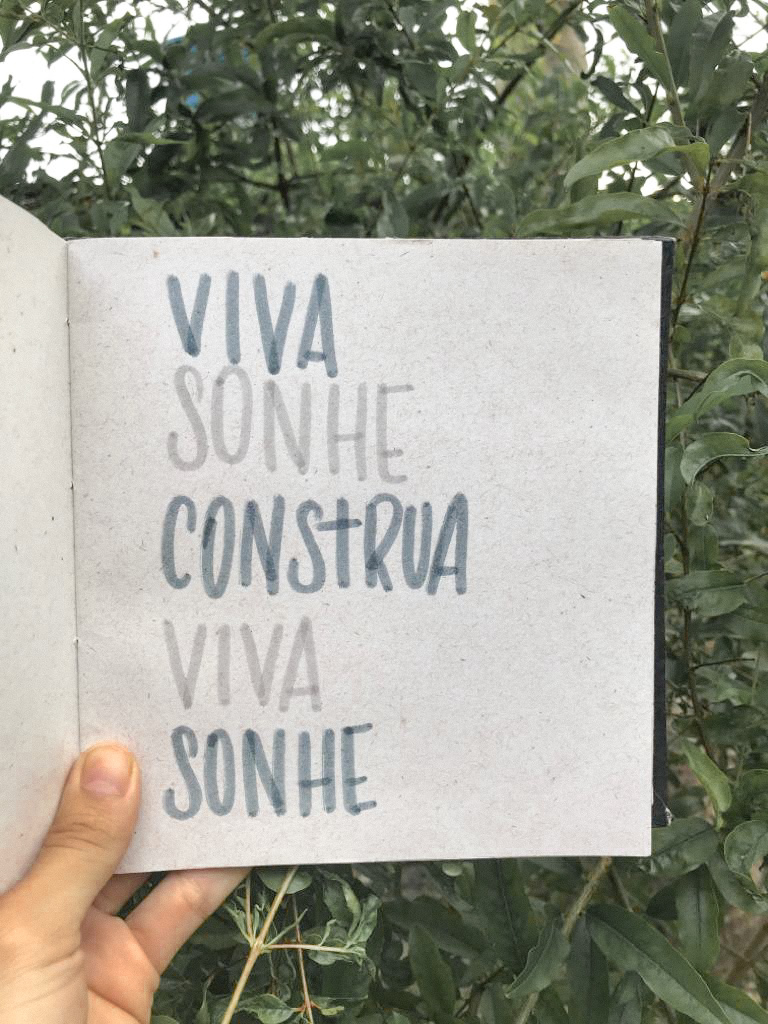 VIVA
SONHE
CONSTRUA
VIVA
SONHE